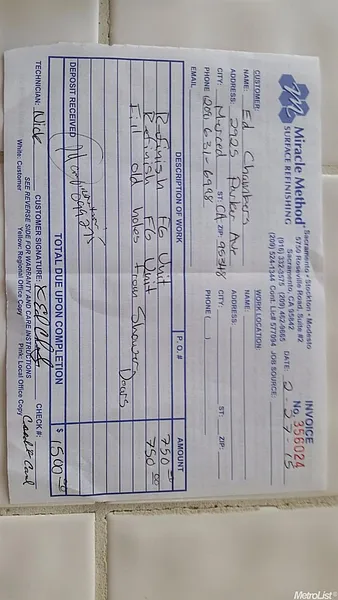 Miracle Method®
SURFACE REFINISHING
Sacramento • Stockton • Modesto
5750 Roseville Road, Suite #2
Sacramento, CA 95842
(916) 332-5575 (209) 462-9665
(209) 524-1344 Cont. Lic# 577094
INVOICE
No. 356024
DATE: 2-27-15
JOB SOURCE:
CUSTOMER:
NAME: Ed Chambers
ADDRESS: 2925 Parker Ave
CITY: Merced ST: CA ZIP: 95348
PHONE (209) 631-6968
EMAIL
WORK LOCATION:
NAME:
ADDRESS:
CITY: ST: ZIP:
PHONE ( )
DESCRIPTION OF WORK P.O. # AMOUNT
Refinish FG Unit 750 00
Refinish FG Unit 750 00
Fill old holes from Shower Doors
DEPOSIT RECEIVED
TOTAL DUE UPON COMPLETION $ 1500 00
TECHNICIAN: Nick CUSTOMER SIGNATURE: X CHECK #: Credit Card
SEE REVERSE SIDE FOR WARRANTY AND CARE INSTRUCTIONS
White: Customer Yellow: Regional Office Copy Pink: Local Office Copy
MetroList®